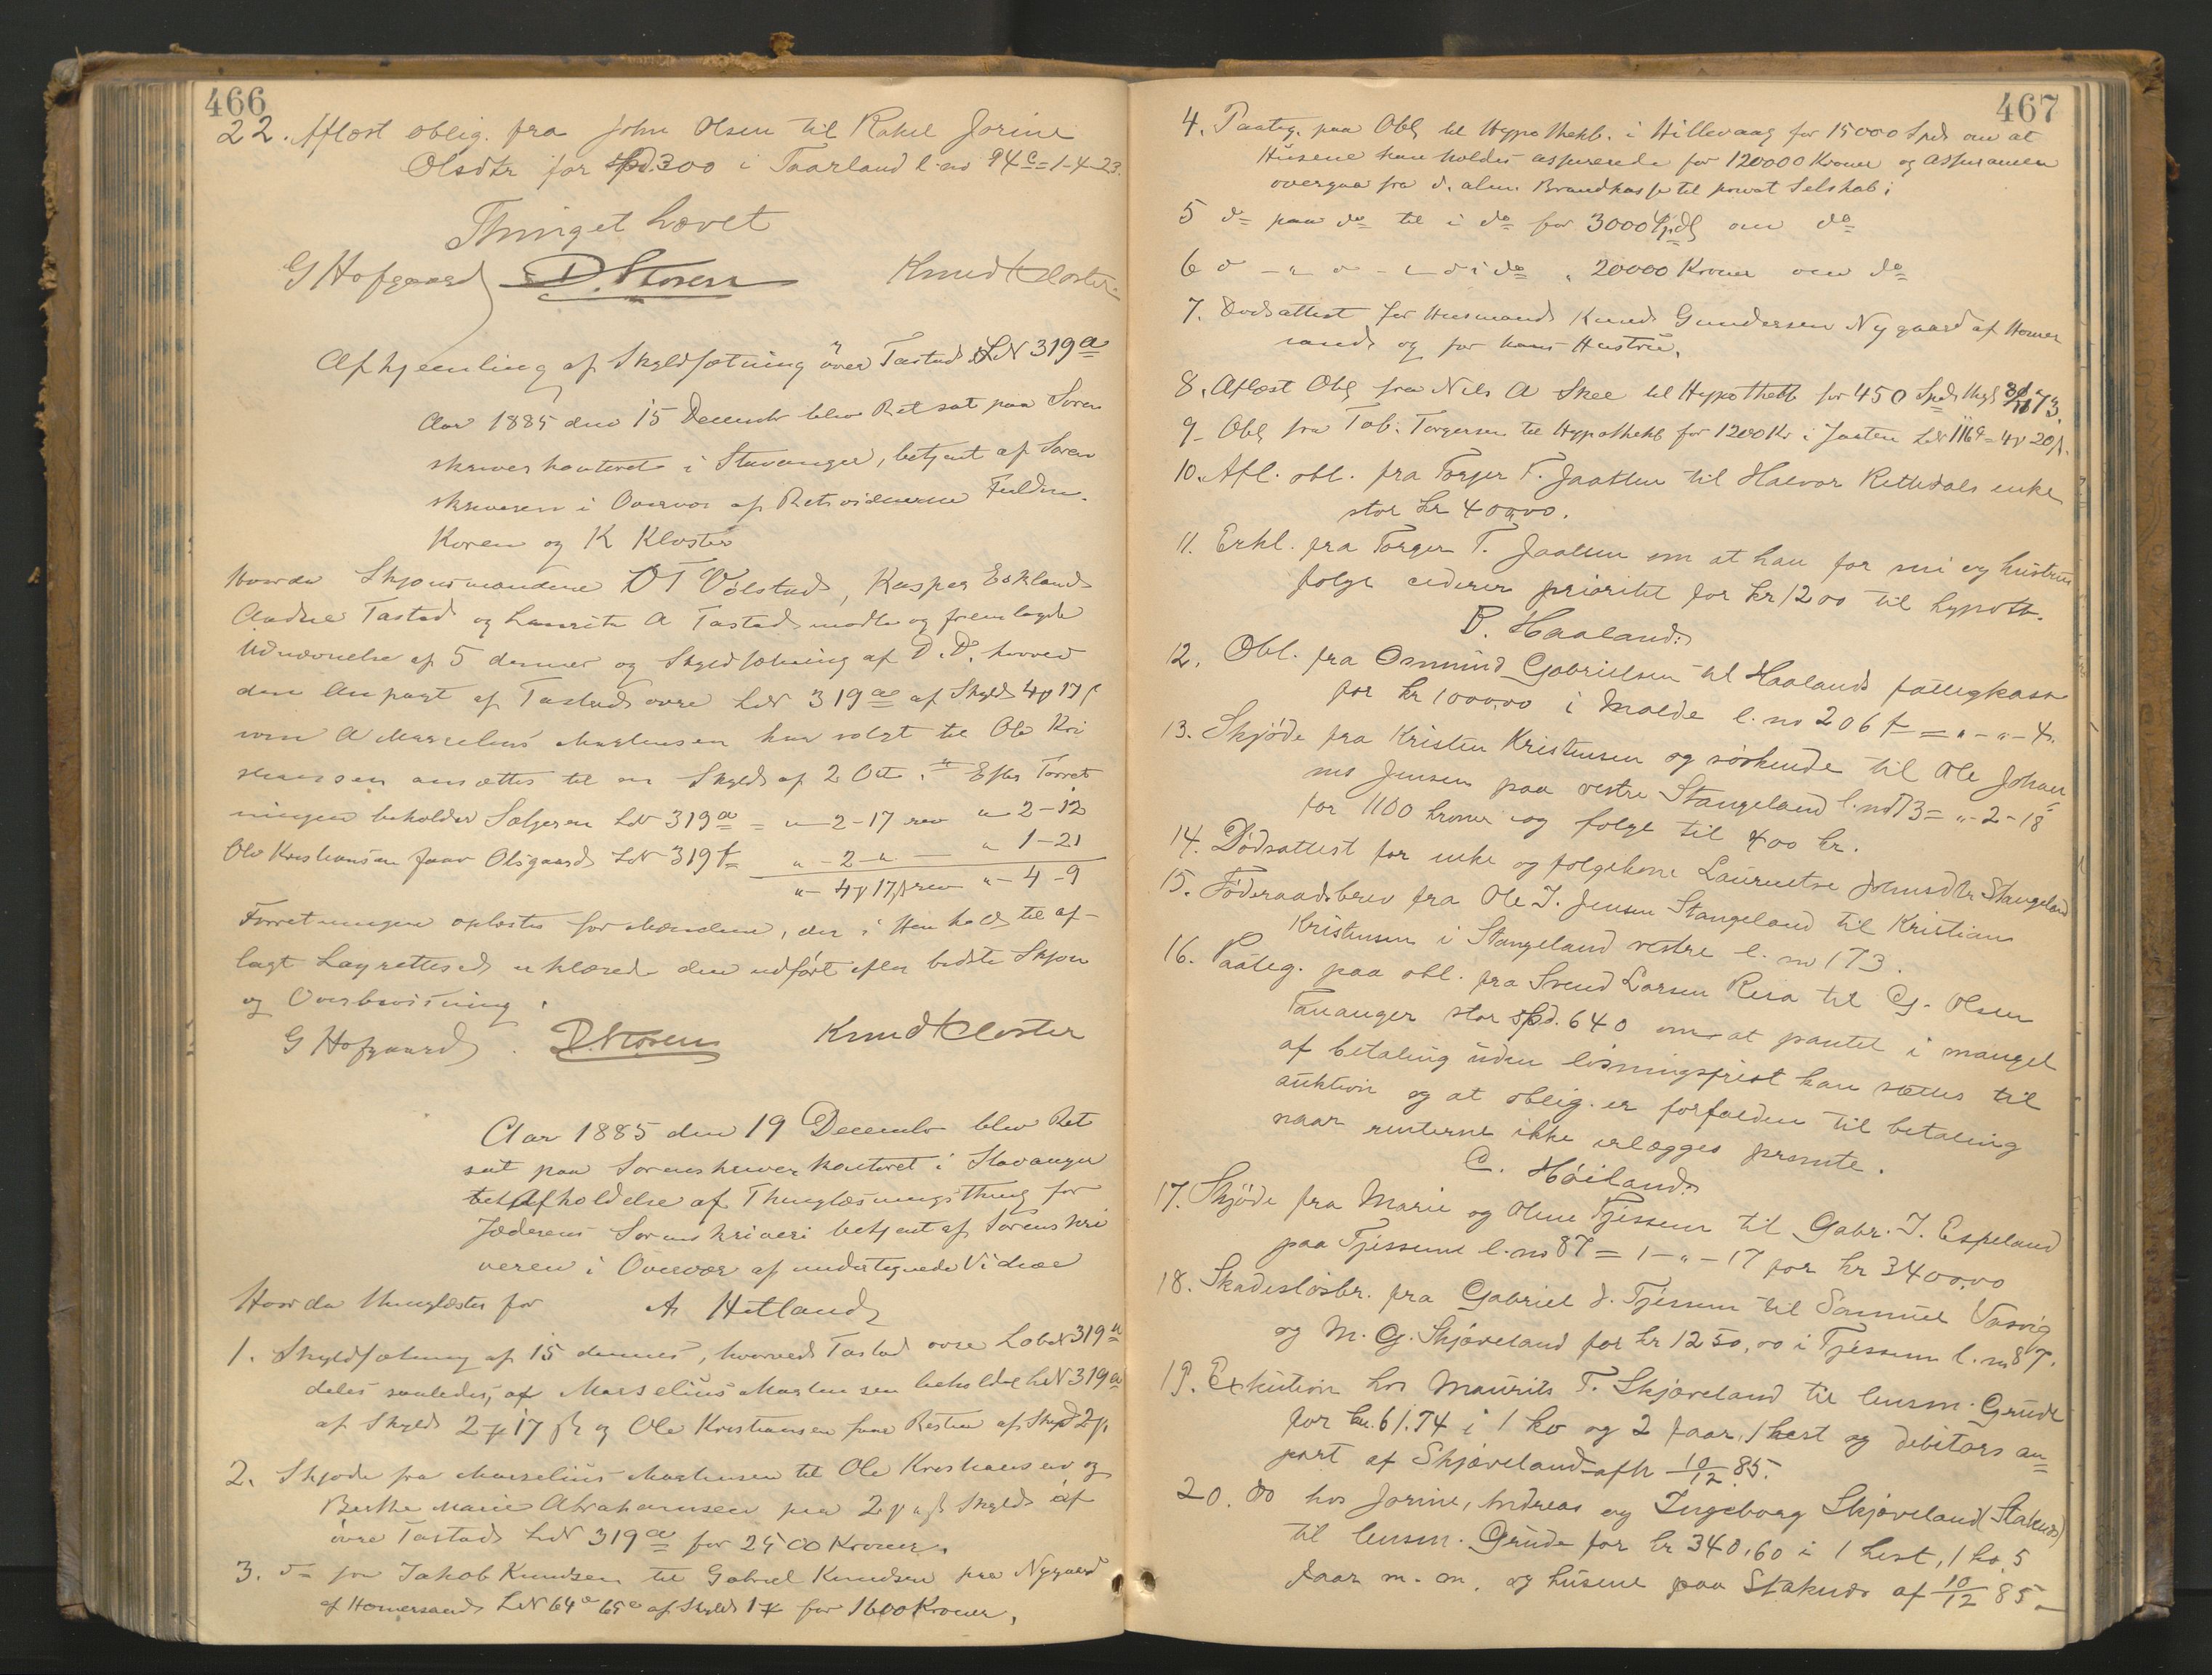 466
22. Aflæst oblig. fra John Olsen til Rakel Jorine
Olsdtr for spd. 300 i Taarland l.no 94c = 1-4-23.
Thinget hævet
G Hofgaard D. Koren Knud Kloster
Afhjemling af Skyldsætning over Tastad LN 319a
Aar 1885 den 15 Decembr blev Ret sat paa Soren
skriverkontoret i Stavanger, betjent af Soren
skriveren i Overvær af Retsvidnerne Fuldm.
Koren og K Kloster
Hvorda Skjønsmændene D T Völstad, Kasper Eskland
Andre Tastad og Laurits A Tastad mødte og fremlagde
Udnævnelse af 5 dennes og Skyldsætning af D.D. hvorved
den Anpart af Tastad øvre LN 319a af Skyld 4 17
som A Marselius Martinsen har solgt til Ole Kri
stiansen ansættes til en Skyld af 2 Ort. Efter Forret
ningen beholder Sælgeren LN 319a = " 2-17 rev " 2-12
Ole Kristiansen faar Olsgaard LN 319f = " - 2 - " — " 1-21
" - 4 17 rev " - 4 - 9
Forretningen oplæstes for Mændene, der i Henhold til af-
lagt Lagrettesed erklærede den udført efter bedste Skjøn
og Overbevisning.
G Hofgaard. D. Koren Knud Kloster
Aar 1885 den 19 Decembr blev Ret
sat paa Sorenskriverkontoret i Stavanger
til Afholdelse af Thinglæsningsthing for
Jæderens Sorenskriveri betjent af Sorenskri
veren i Overvær af undertegnede Vidner
Hvorda thinglæstes for A. Hetland
1. Skyldsætning af 15 dennes, hvorved Tastad øvre LobN 319a
deles saaledes, at Marselius Martinsen beholder LN 319a
af Skyld 2 17 og Ole Kristiansen faar Resten af Skyld 2
2. Skjøde fra Marselius Martinsen til Ole Kristiansen og
Berthe Marie Abrahamsen paa 2 Skyld af
øvre Tastad LN 319a for 2500 Kroner.
3. do fra Jakob Knudsen til Gabriel Knudsen paa Nygaard
af Homersand LN 64a 65a af Skyld 1 for 1600 Kroner.
467
4. Paateg. paa Obl til Hypothekb. i Hillevaag for 15000 Spd om at
Husene kan holdes assurerede for 120000 Kroner og Assurancen
overgaa fra d. alm. Brandkasse til privat Selskab;
5 do paa do til i do for 3000 Spd om do
6 d - " d - " d i do " 20000 Kroner om do
7. Dødsattest for Husmand Knud Gundersen Nygaard af Homer
sand og for hans Hustru.
8. Aflæst Obl fra Nils A Skee til Hypothekb for 450 Spd thgl 73.
9. Obl fra Tob. Torgersen til Hypothekb for 1200 Kr i Jaaten LN 116a = 4 20
10. Afl. obl. fra Torger T. Jaatten til Halvor Rettedals enke
stor kr 400,00.
11. Erkl. fra Torger T. Jaatten om at han for sin og hustrus
følge cederer prioritet for kr 1200 til hypoth.
B. Haaland:
12. Obl. fra Osmund Gabrielsen til Haalands fattigkasse
for kr 1000,00 i Malde l. no 206f = " - " - 4.
13. Skjøde fra Kristen Kristensen og søskende til Ole Johan
nes Jensen paa vestre Stangeland l. no 173 = " - 2 - 18
for 1100 kroner og følge til 400 kr.
14. Dødsattest for enke og følgekone Laurentse Johnsdtr Stangeland
15. Föderaadsbrev fra Ole J. Jensen Stangeland til Kristian
Kristensen i Stangeland vestre l. no 173.
16. Paateg. paa obl. fra Svend Larsen Risa til G. Olsen
Tananger stor spd. 640 om at pantet i mangel
af betaling uden løsningsfrist kan sættes til
auktion og at oblig. er forfalden til betaling
naar renterne ikke erlægges promte.
C. Höiland:
17. Skjöde fra Marie og Oline Tjessem til Gabr. J. Espeland
paa Tjessem l. no 87 = 1 - " - 17 for kr 3400,00
18. Skadesløsbr. fra Gabriel J. Tjessem til Samuel Vasvig
og M. G. Skjæveland for kr 1250,00 i Tjessem l. no 87.
19. Exkution hos Maurits T. Skjæveland til lensm. Grude
for kr. 61.74 i 1 ko og 2 faar, 1 hest og debitors an
part af Skjæveland afh 10/12 85.
20. do hos Jorine, Andreas og Ingeborg Skjæveland (Staknæs)
til lensm. Grude for kr 340,60 i 1 hest, 1 ko, 5
faar m. m. og husene paa Staknæs af 10/12 85